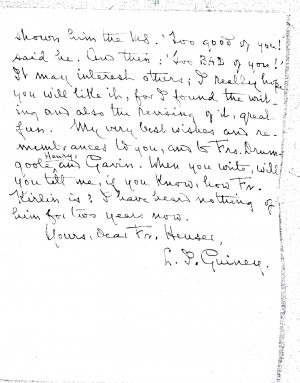 shown him the MS. 'Too good of you!'
said he. And this: 'Too BAD of you!'
It may interest others; I really hope
you will like it, for I found the writ-
ing and also the revising of it, great
fun. My very best wishes and re-
membrances to you, and to Frs. Drum-
goole Henry and Gavin. When you write, will
you tell me, if you know, how Fr.
Kirlin is? I have heard nothing of
him for two years now.
Yours, dear Fr. Heuser,
L. I. Guiney.